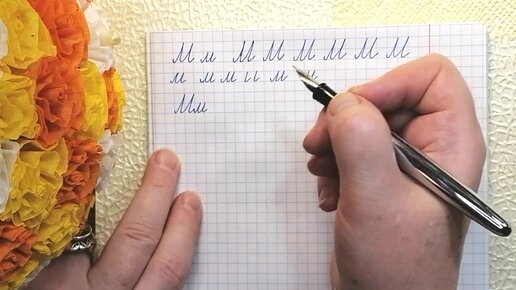 М м М М М М М М
м м м м
Мм